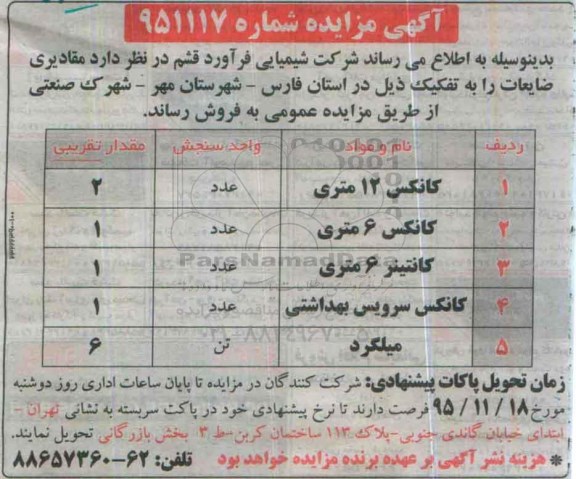 آگهی مزایده شماره ۹۵۱۱۱۷
بدینوسیله به اطلاع می رساند شرکت شیمیایی فرآورد قشم در نظر دارد مقادیری
ضایعات را به تفکیک ذیل در استان فارس - شهرستان مهر - شهرک صنعتی
از طریق مزایده عمومی به فروش رساند.
ردیف نام و مواد واحد سنجش مقدار تقریبی
۱ کانکس ۱۲ متری عدد ۲
۲ کانکس ۶ متری عدد ۱
۳ کانتینر ۶ متری عدد ۱
۴ کانکس سرویس بهداشتی عدد ۱
۵ میلگرد تن ۶
ParsNamadData
زمان تحویل پاکات پیشنهادی: شرکت کنندگان در مزایده تا پایان ساعات اداری روز دوشنبه
مورخ ۱۸ / ۱۱ / ۹۵ فرصت دارند تا نرخ پیشنهادی خود در پاکت سربسته به نشانی تهران -
ابتدای خیابان گاندی جنوبی-پلاک ۱۱۳ ساختمان کربن-ط ۳ بخش بازرگانی تحویل نمایند.
* هزینه نشر آگهی بر عهده برنده مزایده خواهد بود تلفن: ۶۲-۸۸۶۵۷۳۶۰